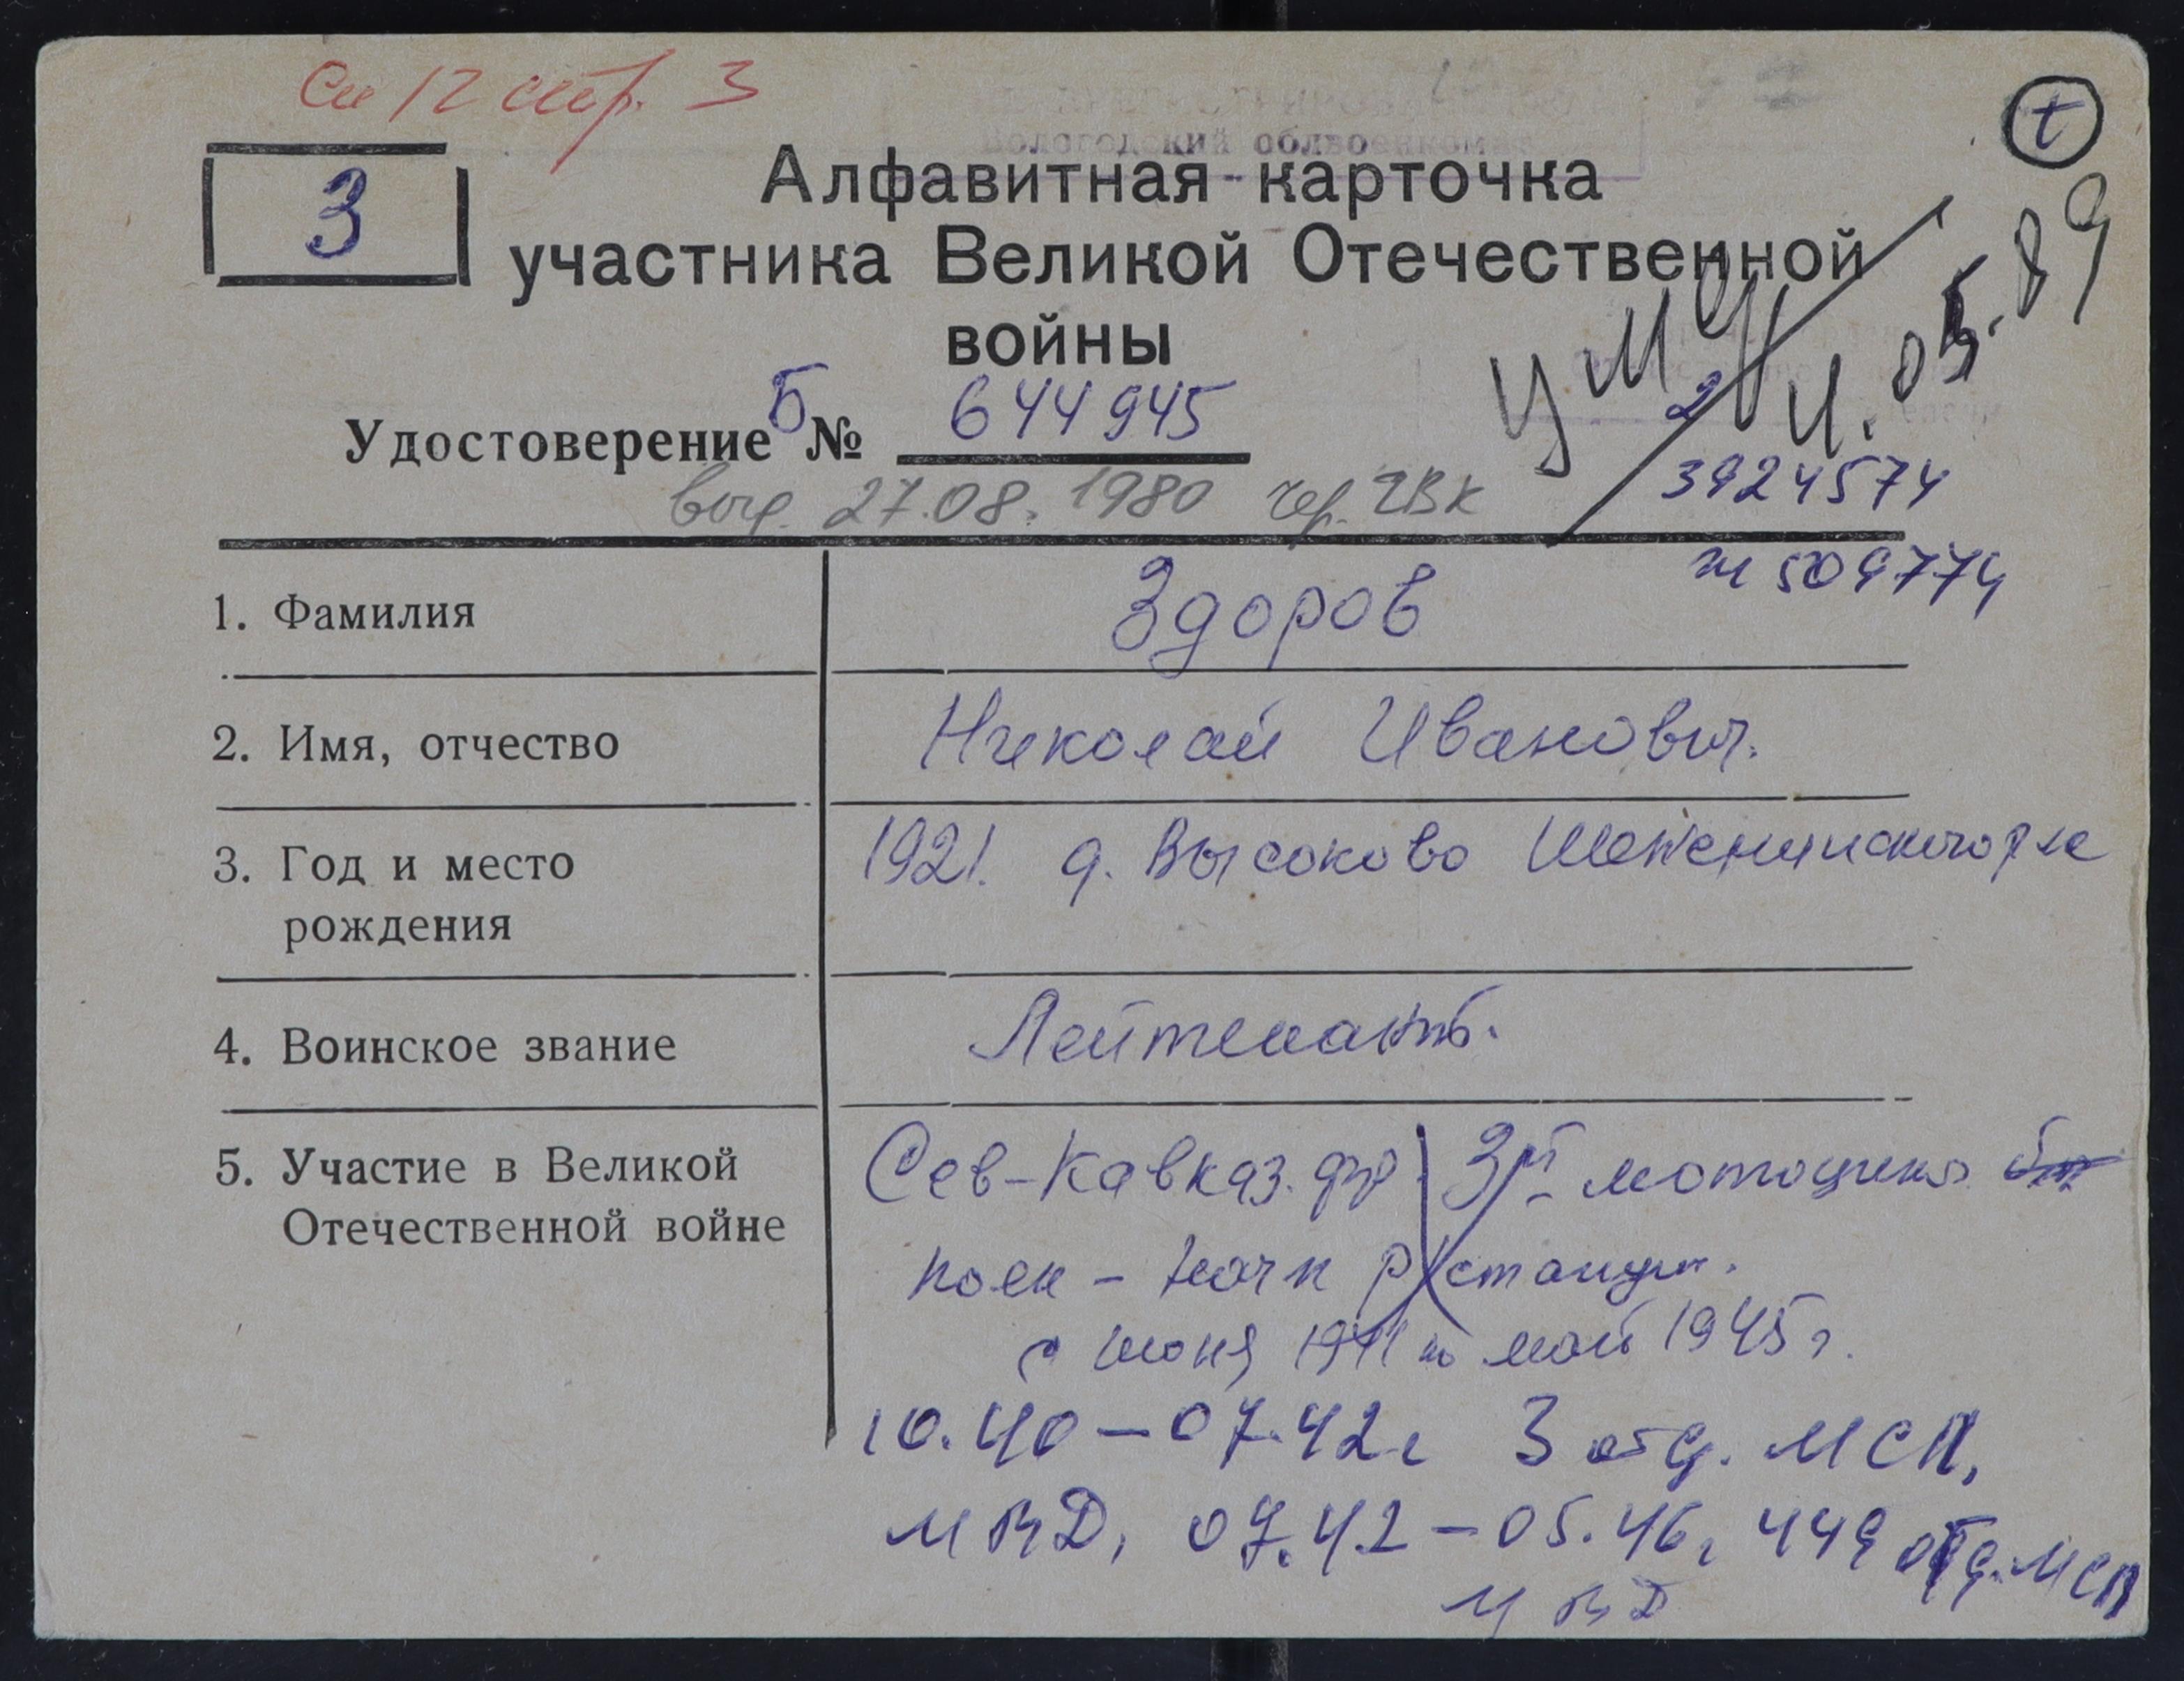 Сп 12 стр. 3
t
3
Вологодский облвоенкомат
Алфавитная карточка
участника Великой Отечественной
войны
Умер
05.89
Удостоверение Б № 644945
2
3924574
выд. 27.08.1980 чер. ГВК
1. Фамилия Здоров
2. Имя, отчество Николай Иванович.
3. Год и место рождения 1921. д. Высоково
4. Воинское звание Лейтенант.
5. Участие в Великой Отечественной войне Сев-Кавказ. фр 3й мотоцикл
полк - нач р/станции.
с июня 1941 по май 1945 г.
10.40-07.42 г 3 отд. МСП,
МВД, 07.42-05.46, 449 отд. МСП
МВД